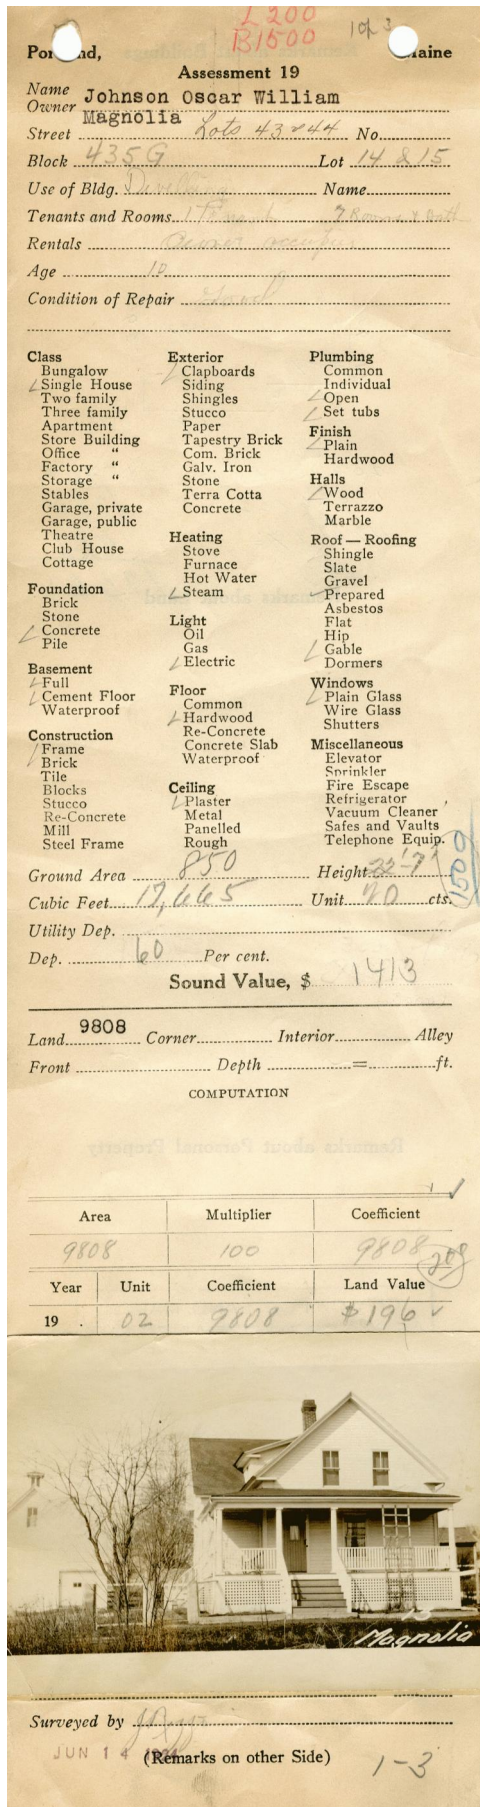 L 200
B 1500
1 of 3
Portland, Maine
Assessment 19
Name
Owner Johnson Oscar William
Street Magnolia Lots 43 & 44 No.
Block 435 G Lot 14 & 15
Use of Bldg. Dwelling Name
Tenants and Rooms 7 Rooms & Bath
Rentals Owner
Age 10
Condition of Repair Good
Class
Bungalow
✓ Single House
Two family
Three family
Apartment
Store Building
Office "
Factory "
Storage "
Stables
Garage, private
Garage, public
Theatre
Club House
Cottage
Foundation
Brick
Stone
✓ Concrete
Pile
Basement
✓ Full
✓ Cement Floor
Waterproof
Construction
✓ Frame
Brick
Tile
Blocks
Stucco
Re-Concrete
Mill
Steel Frame
Exterior
✓ Clapboards
Siding
Shingles
Stucco
Paper
Tapestry Brick
Com. Brick
Galv. Iron
Stone
Terra Cotta
Concrete
Heating
Stove
Furnace
Hot Water
✓ Steam
Light
Oil
Gas
✓ Electric
Floor
Common
✓ Hardwood
Re-Concrete
Concrete Slab
Waterproof
Ceiling
✓ Plaster
Metal
Panelled
Rough
Plumbing
Common
Individual
✓ Open
✓ Set tubs
Finish
✓ Plain
Hardwood
Halls
✓ Wood
Terrazzo
Marble
Roof — Roofing
Shingle
Slate
Gravel
✓ Prepared
Asbestos
Flat
Hip
✓ Gable
Dormers
Windows
✓ Plain Glass
Wire Glass
Shutters
Miscellaneous
Elevator
Sprinkler
Fire Escape
Refrigerator
Vacuum Cleaner
Safes and Vaults
Telephone Equip.
1500
Ground Area 850 Height 22'7"
Cubic Feet 17,665 Unit 20 cts.
Utility Dep.
Dep. 60 Per cent.
Sound Value, $ 1413
Land 9808 Corner Interior Alley
Front Depth = ft.
COMPUTATION
Area Multiplier Coefficient
9808 100 9808
208
Year Unit Coefficient Land Value
19 . 02 9808 $196 ✓
15
Magnolia
Surveyed by
JUN 14
(Remarks on other Side)
1-3